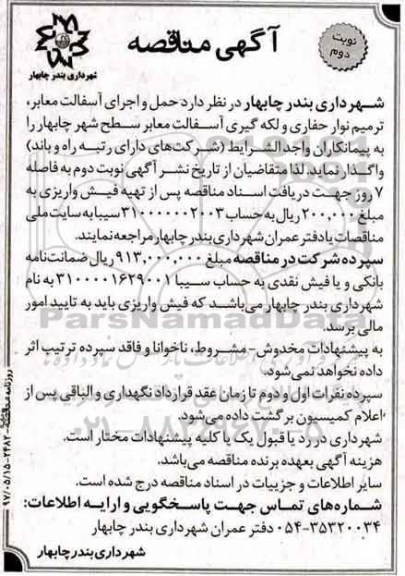 آگهی مناقصه
نوبت
دوم
شهرداری بندر چابهار
شهرداری بندر چابهار در نظر دارد حمل و اجرای آسفالت معابر،
ترمیم نوار حفاری و لکه گیری آسفالت معابر سطح شهر چابهار را
به پیمانکاران واجد الشرایط (شرکت‌های دارای رتبه راه و باند)
واگذار نماید. لذا متقاضیان از تاریخ نشر آگهی نوبت دوم به فاصله
۷ روز جهت دریافت اسناد مناقصه پس از تهیه فیش واریزی به
مبلغ ۲۰۰,۰۰۰ ریال به حساب ۳۱۰۰۰۰۰۰۰۲۰۰۳ سیبا به سایت ملی
مناقصات یا دفتر عمران شهرداری بندر چابهار مراجعه نمایند.
سپرده شرکت در مناقصه مبلغ ۹۱۳,۰۰۰,۰۰۰ ریال ضمانت نامه
بانکی و یا فیش نقدی به حساب سیبا ۳۱۰۰۰۰۱۶۲۹۰۰۱ به نام
شهرداری بندر چابهار می‌باشد که فیش واریزی باید به تایید امور
مالی برسد.
به پیشنهادات مخدوش- مشروط، ناخوانا و فاقد سپرده ترتیب اثر
داده نخواهد نمی‌شود.
سپرده نفرات اول و دوم تا زمان عقد قرارداد نگهداری و الباقی پس از
اعلام کمیسیون برگشت داده می‌شود.
شهرداری در رد یا قبول یک یا کلیه پیشنهادات مختار است.
هزینه آگهی بعهده برنده مناقصه می‌باشد.
سایر اطلاعات و جزییات در اسناد مناقصه درج شده است.
شماره‌های تماس جهت پاسخگویی و ارایه اطلاعات:
۰۵۴-۳۵۳۲۰۰۳۴ دفتر عمران شهرداری بندر چابهار
شهرداری بندر چابهار
روزنامه مناقصه ۲۴۸۲- ۹۷/۰۵/۱۵
ParsNamadData
۰۲۱-۸۸۳۴۹۶۷۰-۵